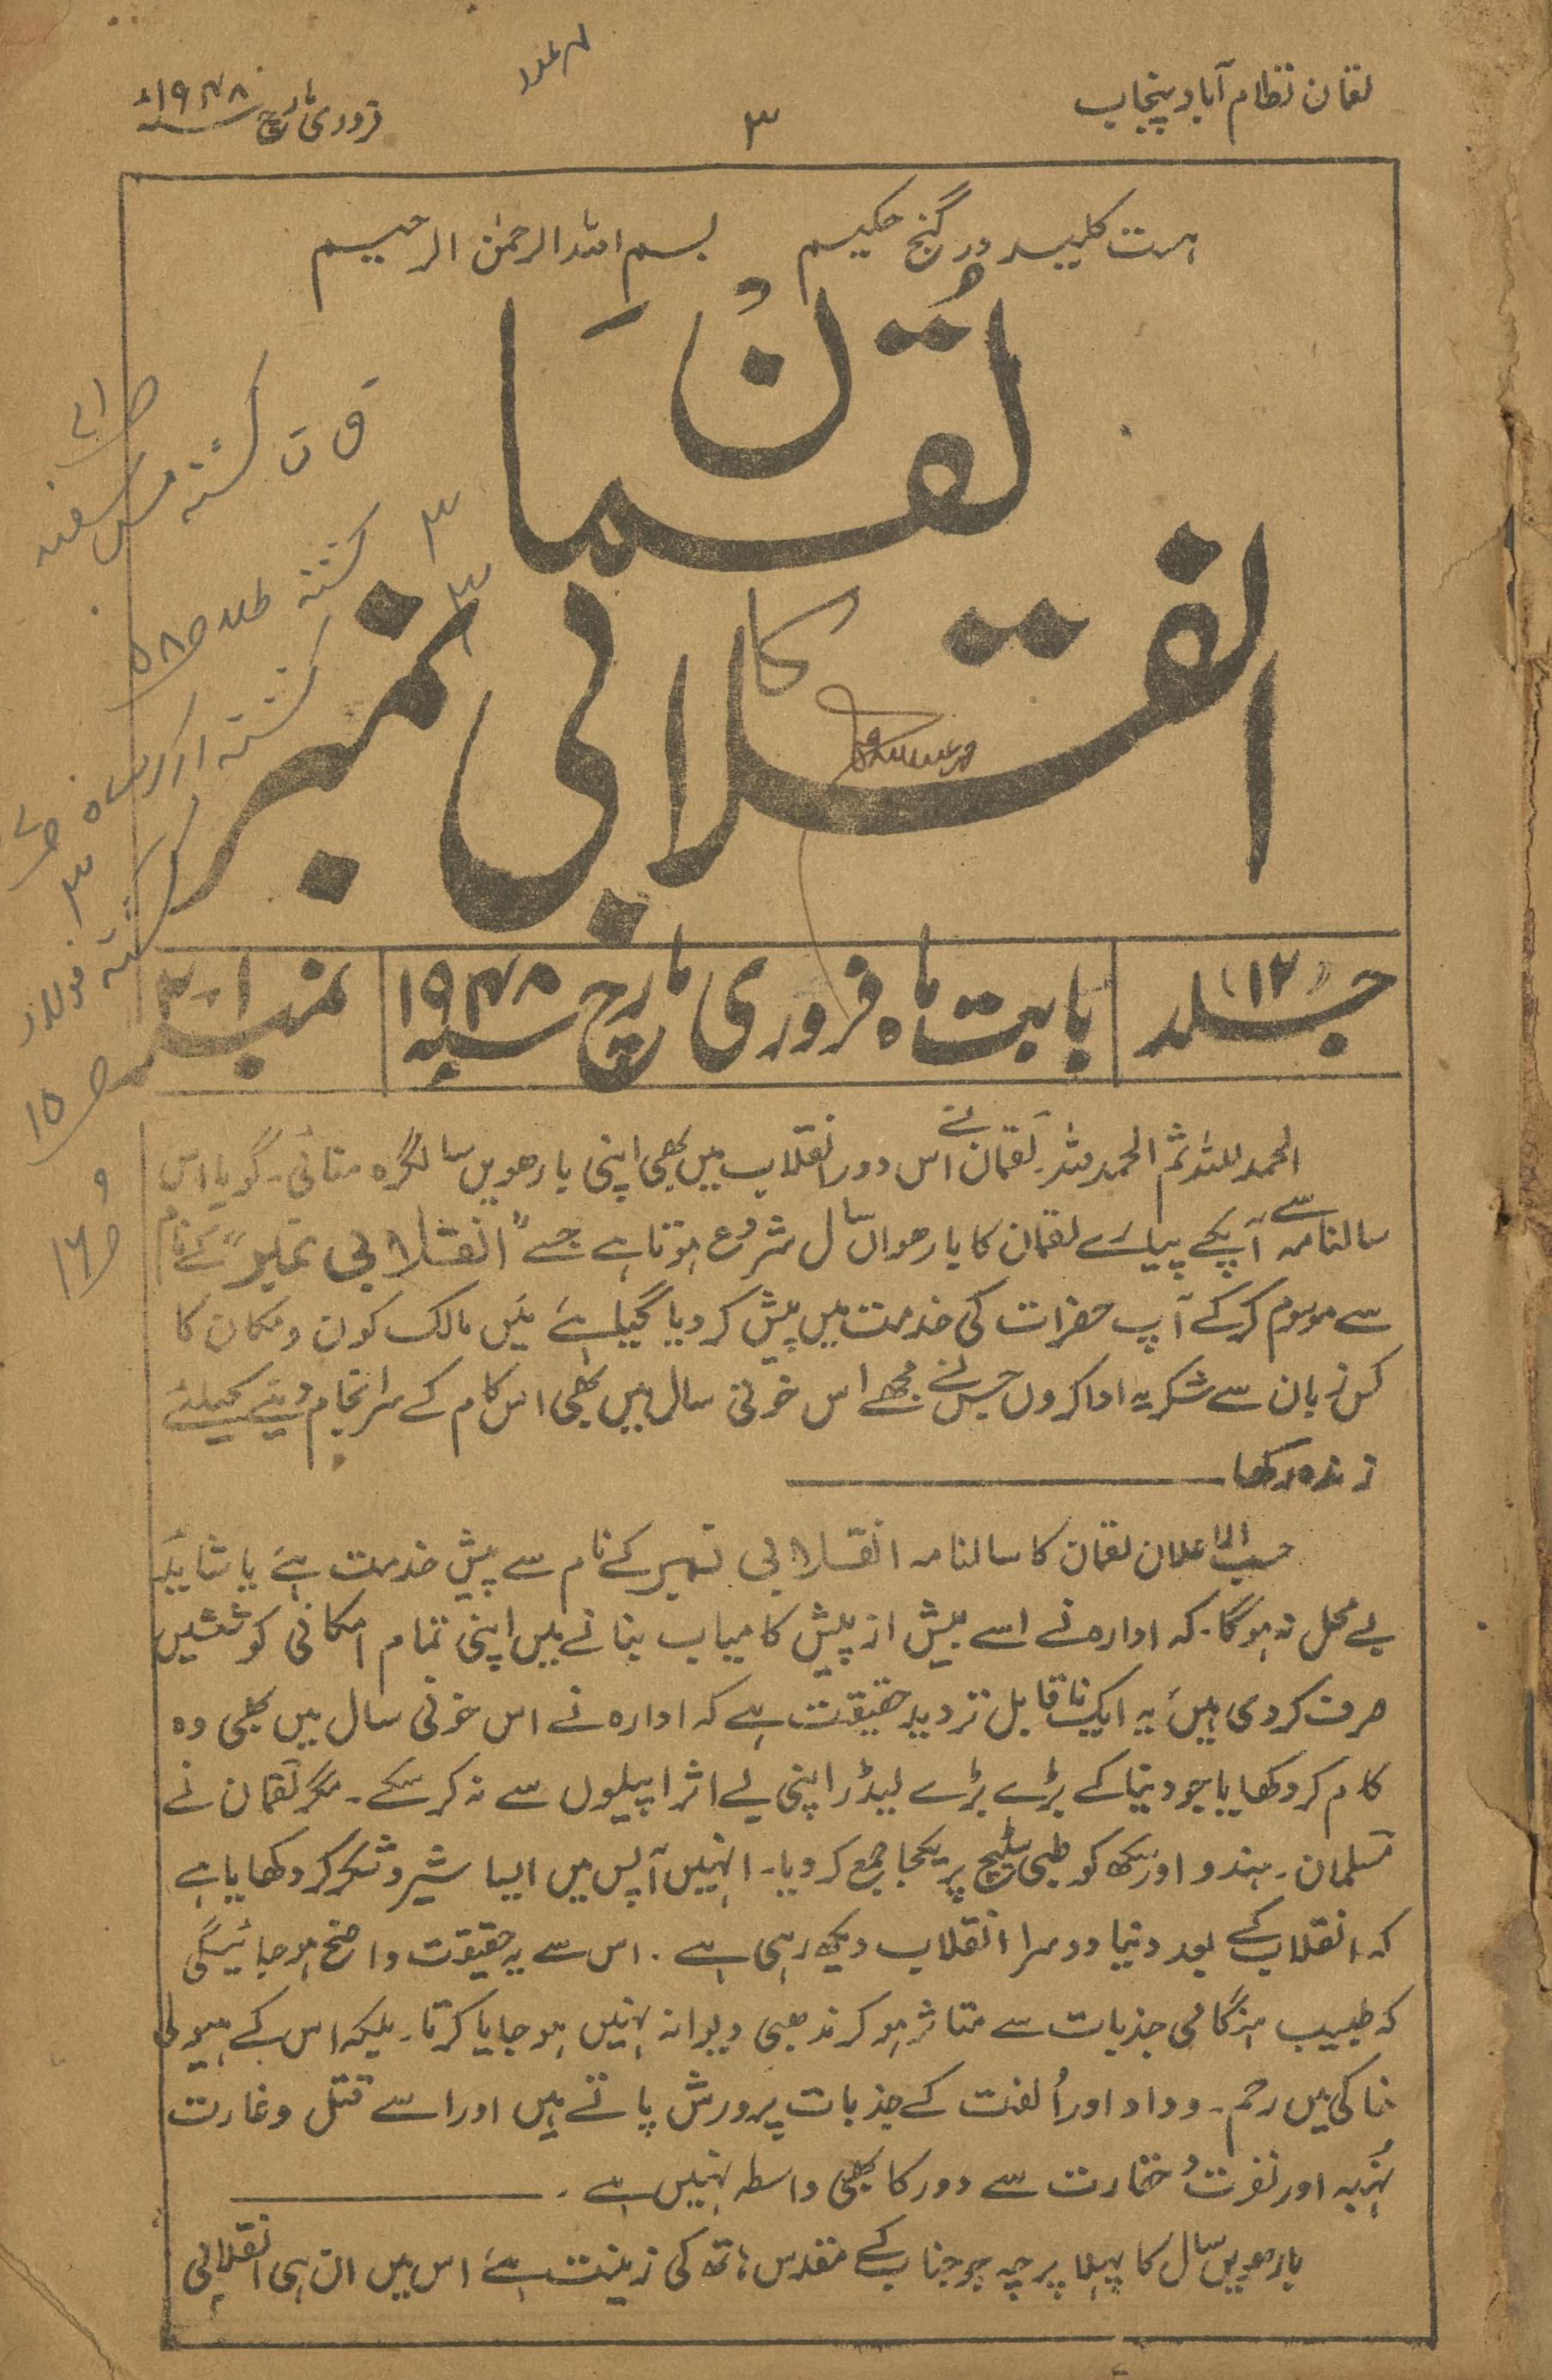 لقمان نظام آباد پنجاب
۳
فروری مارچ ۱۹۴۸ء
ہست کلید در گنج حکیم بسم اللہ الرحمٰن الرحیم
لقمان
کا
انقلابی نمبر
جلد (۱۲)
بابت ماہ فروری مارچ ۱۹۴۸ء
نمبر ۱-۲
الحمد للہ ثم الحمد للہ۔ لقمان نے اس دور انقلاب میں بھی اپنی بارھویں سالگرہ منائی۔ گویا اس
سالنامہ سے آپکے پیارے لقمان کا بارھواں سال شروع ہوتا ہے جسے "انقلابی نمبر" کے نام
سے موسوم کرکے آپ حضرات کی خدمت میں پیش کر دیا گیا ہے میں مالک کون و مکان کا
کس زبان سے شکریہ ادا کروں جس نے مجھے اس خونی سال میں بھی اس کام کے سرانجام دینے کیلئے
زندہ رکھا
حسب الاعلان لقمان کا سالنامہ انقلابی نمبر کے نام سے پیش خدمت ہے یا شاید
بے محل نہ ہوگا۔ کہ ادارہ نے اسے بیش از پیش کامیاب بنانے میں اپنی تمام امکانی کوششیں
صرف کر دی ہیں یہ ایک ناقابل تردید حقیقت ہے کہ ادارہ نے اس خونی سال میں بھی وہ
کام کر دکھایا جو دنیا کے بڑے بڑے لیڈر اپنی بے اثر اپیلوں سے نہ کر سکے۔ مگر لقمان نے
مسلمان۔ ہندو اور سکھ کو طبی سٹیج پر یکجا جمع کر دیا۔ انہیں آپس میں ایسا شیر و شکر کر دکھایا ہے
کہ انقلاب کے بعد دنیا دوسرا انقلاب دیکھ رہی ہے۔ اس سے یہ حقیقت واضح ہو جائیگی
کہ طبیب ہنگامی جذبات سے متاثر ہو کر مذہبی دیوانہ نہیں ہو جایا کرتا۔ بلکہ اس کے ہیولیٰ
خاکی میں رحم۔ وداد اور اُلفت کے جذبات پرورش پاتے ہیں اور اسے قتل و غارت
نہُبہ اور نفرت و حقارت سے دور کا بھی واسطہ نہیں ہے۔
بارھویں سال کا پہلا پرچہ جو جناب کے مقدس ہاتھ کی زینت ہے اس میں ان ہی انقلابی
ق ت
کشتہ مس سفید
۳
کشتہ طلا ص۵۸
۳
کشتہ
۳
کشتہ فولاد
ص۱۵
و
ص۱۶